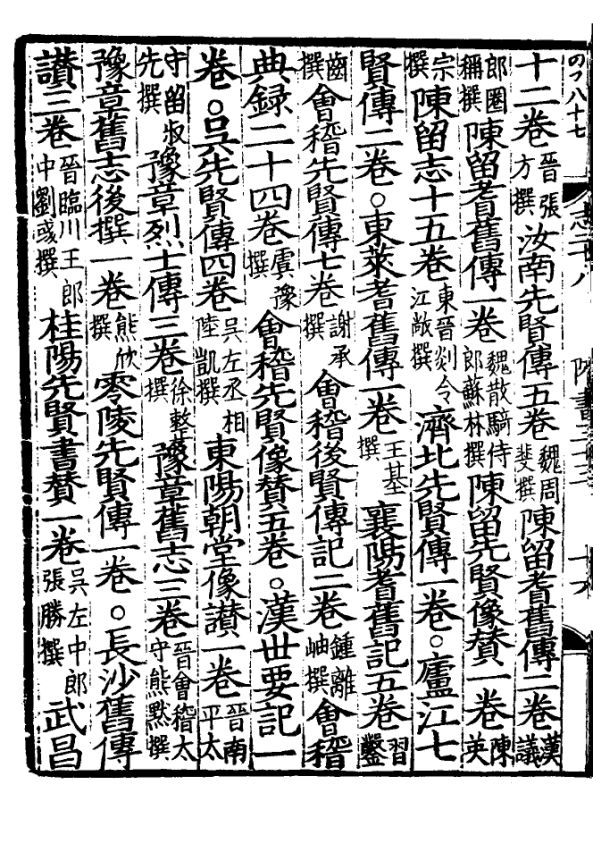 志二十八 隋書三十三
十二卷晉張方撰汝南先賢傳五卷魏周斐撰陳留耆舊傳二卷漢議
郎圈稱撰陳留耆舊傳一卷魏散騎侍郎蘇林撰陳留先賢像贊一卷陳英
宗撰陳留志十五卷東晉剡令江敞撰濟北先賢傳一卷。廬江七
賢傳二卷。東萊耆舊傳一卷王基撰襄陽耆舊記五卷習鑿
齒撰會稽先賢傳七卷謝承撰會稽後賢傳記二卷鍾離岫撰會稽
典録二十四卷虞豫撰會稽先賢像贊五卷。漢世要記一
卷。吳先賢傳四卷吳左丞相陸凱撰東陽朝堂像讃一卷晉南平太
守留叔先撰豫章烈士傳三卷徐整撰豫章舊志三卷晉會稽太守熊默撰
豫章舊志後撰一卷熊欣撰零陵先賢傳一卷。長沙舊傳
讃三卷晉臨川王郎中劉彧撰桂陽先賢書贊一卷吳左中郎張勝撰武昌